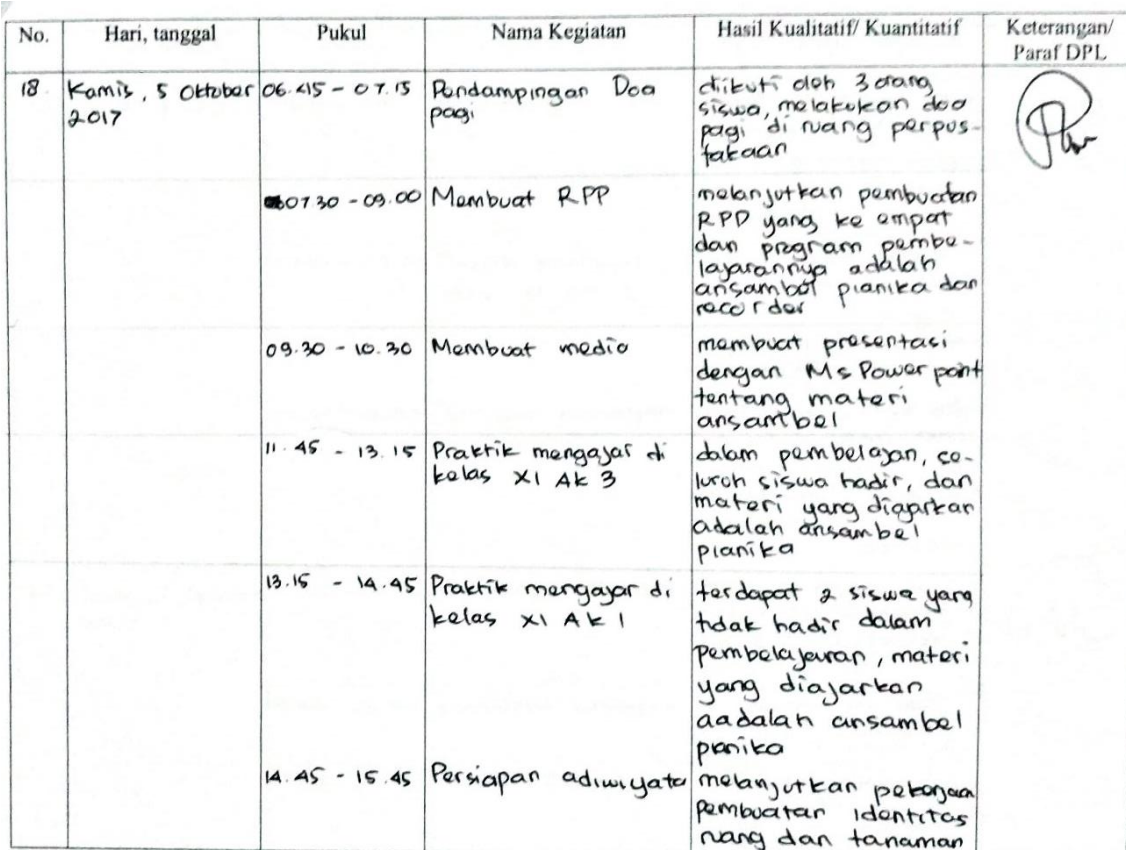 No. Hari, tanggal Pukul Nama Kegiatan Hasil Kualitatif/ Kuantitatif Keterangan/
Paraf DPL
18. Kamis, 5 Oktober 06.45 - 07.15 Pendampingan Doa diikuti oleh 3 orang
2017 pagi siswa, melakukan doa
pagi di ruang perpus-
takaan
07.30 - 09.00 Membuat RPP melanjutkan pembuatan
RPP yang ke empat
dan program pembe-
lajarannya adalah
ansambel pianika dan
recorder
09.30 - 10.30 Membuat media membuat presentasi
dengan Ms Power point
tentang materi
ansambel
11.45 - 13.15 Praktik mengajar di dalam pembelajan, se-
kelas XI AK 3 luruh siswa hadir, dan
materi yang diajarkan
adalah ansambel
pianika
13.15 - 14.45 Praktik mengajar di terdapat 2 siswa yang
kelas XI AK 1 tidak hadir dalam
pembelajaran, materi
yang diajarkan
aadalah ansambel
pianika
14.45 - 15.45 Persiapan adiwiyata melanjutkan pekerjaan
pembuatan identitas
ruang dan tanaman